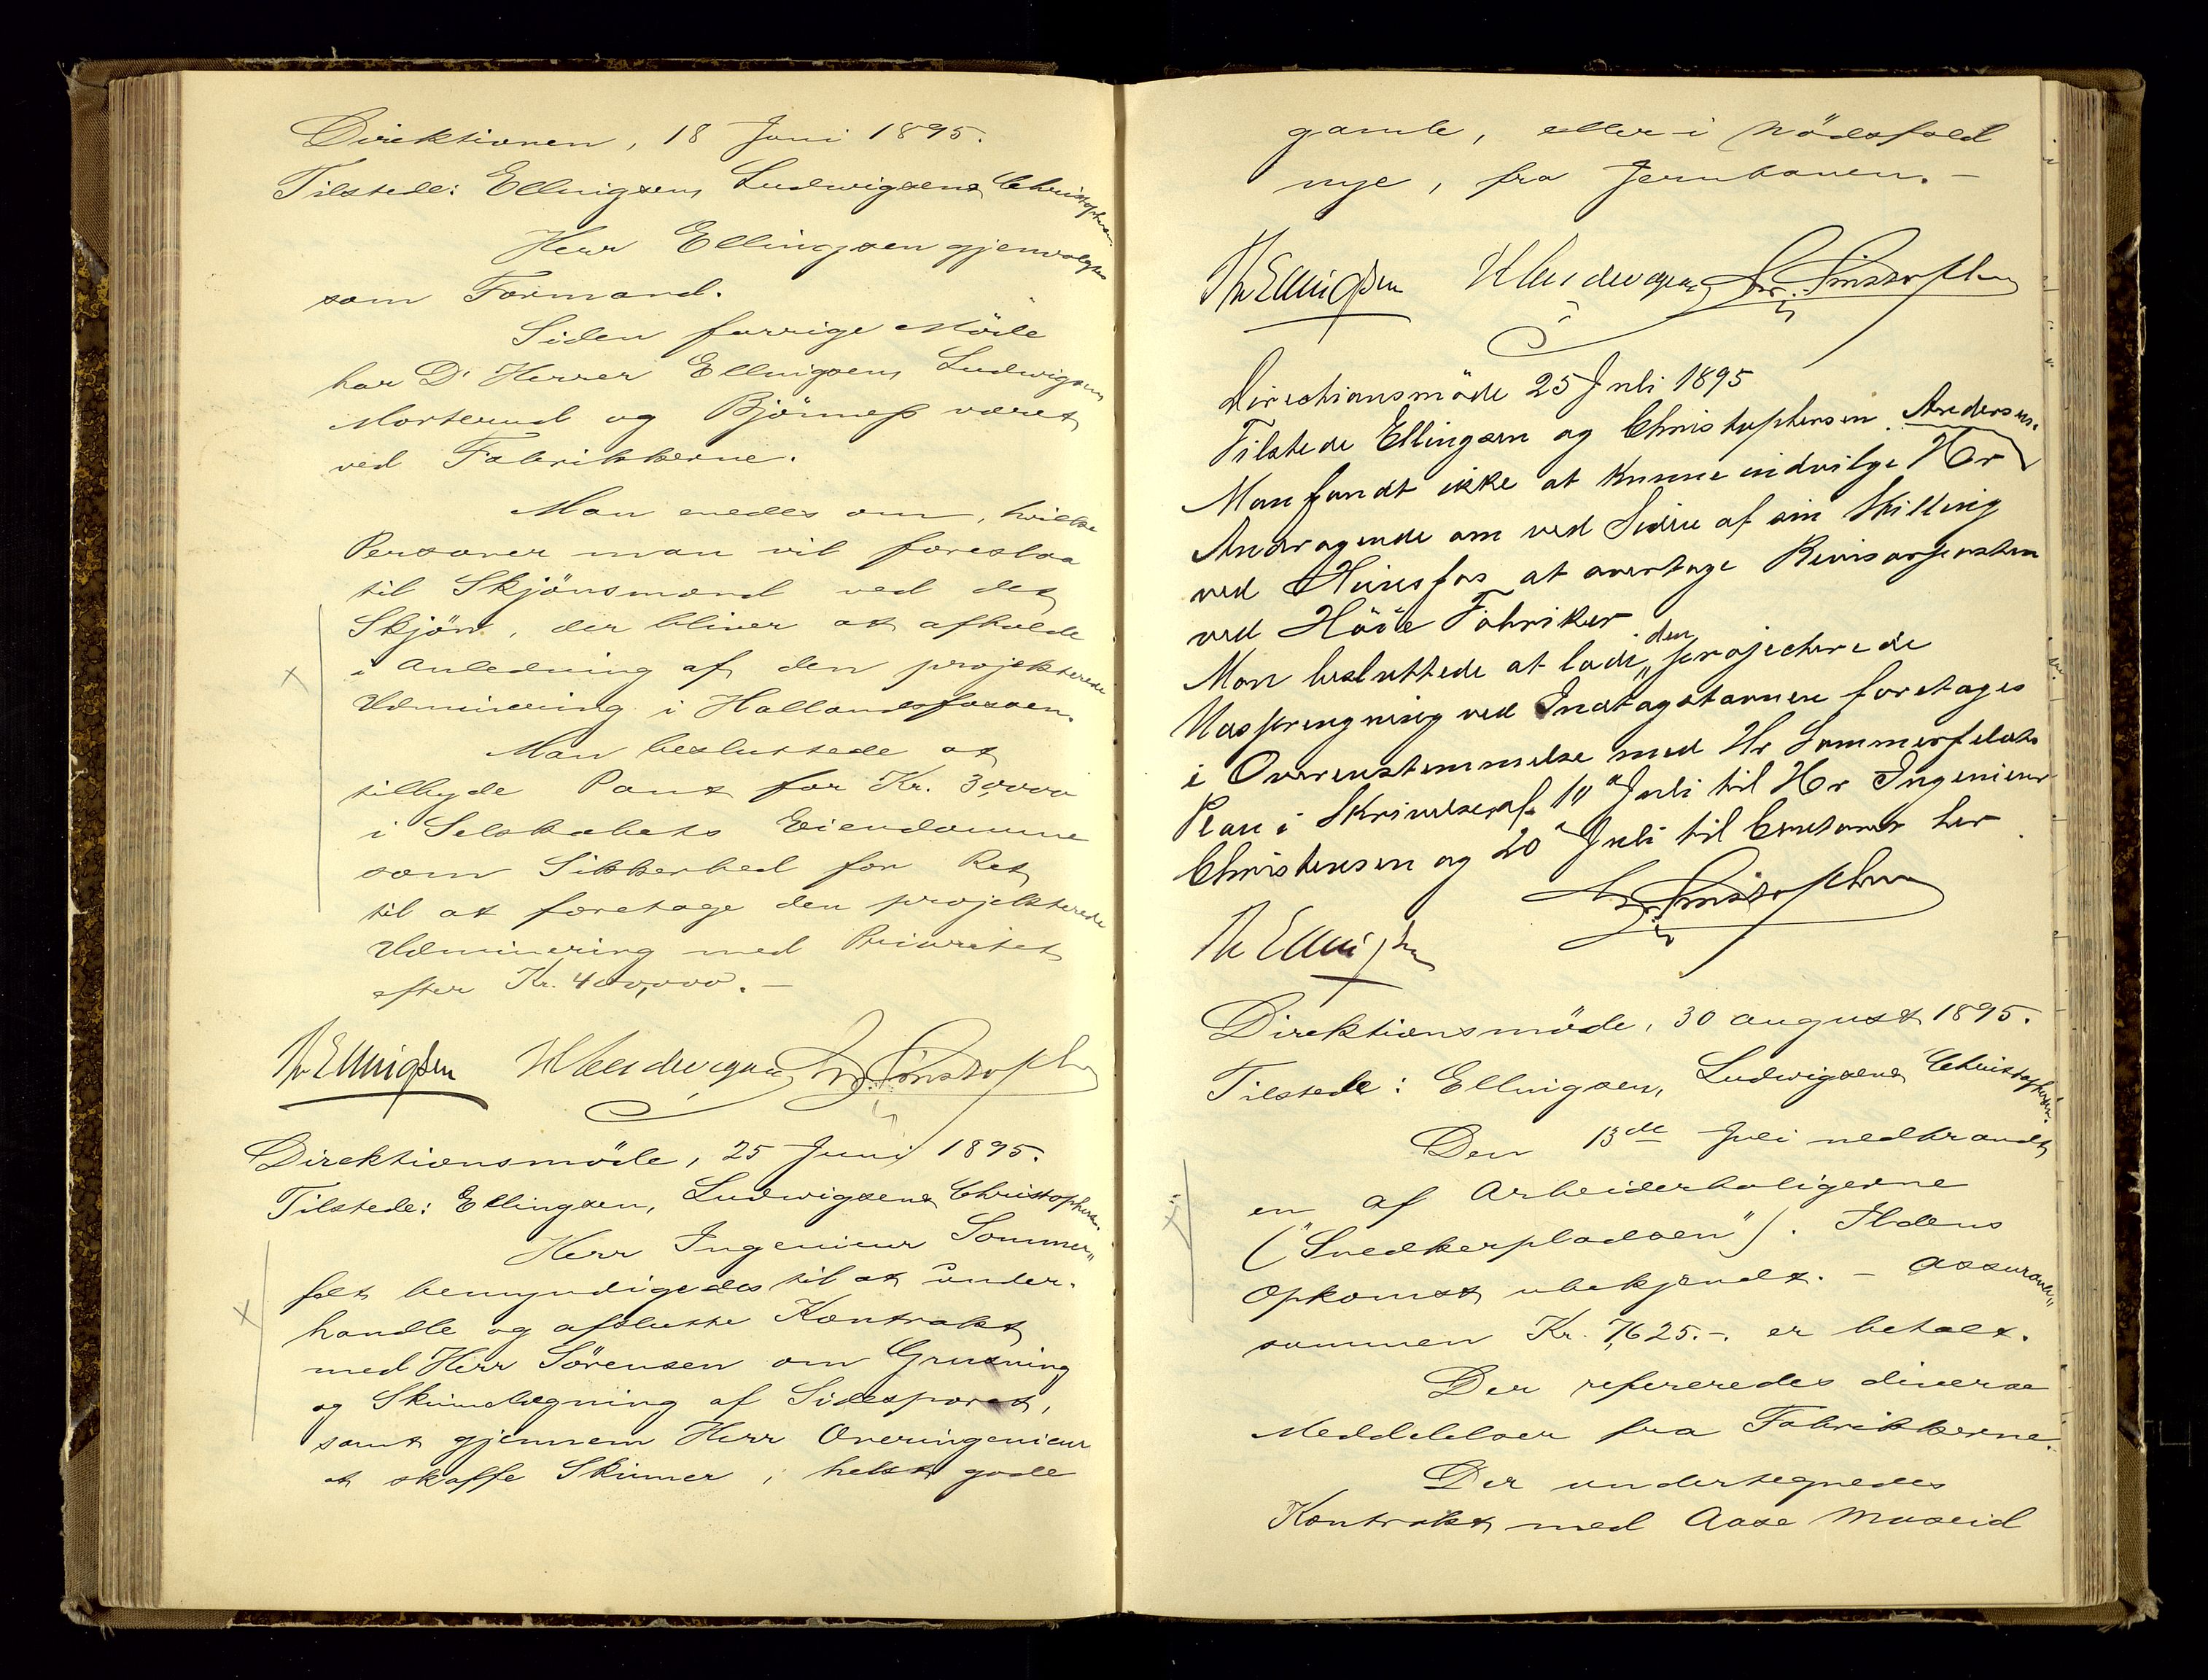 Direktionen, 18 Juni 1895.
Tilstede: Ellingsen, Ludwigsen & Christophersen.
Herr Ellingsen gjenvalgtes
som Formand.
Siden forrige Möde
har D' Herrer Ellingsen, Ludwigsen,
Morterud og Björneß været
ved Fabrikkerne.
Man enedes om, hvilke
Personer man vil foreslaa
til Skjönsmænd ved det
Skjön, der bliver at afholde
i Anledning af den projekterede
Udminering i Hallandsfossen.
Man besluttede at
tilbyde Pant for Kr. 30,000
i Selskabets Eiendomme
som Sikkerhed for Ret
til at foretage den projekterede
Udminering med Prioritet
efter Kr. 400,000. —
Th Ellingsen Ludwigsen Christophersen
Direktionsmöde, 25 Juni 1895.
Tilstede: Ellingsen, Ludwigsen & Christophersen.
Herr Ingenieur Sommer„
felt bemyndigedes til at under-
handle og afslutte Kontrakt
med Herr Sörensen om Grusning
og Skinnelægning af Sidesporet,
samt gjennem Herr Overingenieur
at skaffe Skinner, helst gode
gamle, eller i Nödsfald
nye, fra Jernbanen. —
Th Ellingsen Ludwigsen Christophersen
Directionsmöde 25 Juli 1895
Tilstede Ellingsen og Christophersen. Andersens
Man fandt ikke at kunne indvilge Hr
Andragende om ved Siden af sin Stilling
ved Hunsfos at overtage Revisorposten
ved Höie Fabriker
Man besluttede at lade „den projecterede
Udsprengning ved Indtagstunnen foretages
i Overenstemmelse med Hr Sommerfeldts
Plan i Skrivelse af 11' Juli til Hr Ingenieur
Christensen og 20' Juli til Contoret her
Th Ellingsen Christophersen
Direktionsmöde, 30 August 1895.
Tilstede: Ellingsen, Ludwigsen & Christophersen.
Den 13de Juli nedbrandt
en af Arbeiderboligerne
("Snedkerpladsen"). Ildens
Opkomst ubekjendt. — Assurance„
summen Kr. 7,625.-. er betalt.
Der refereredes diverse
Meddelelser fra Fabrikkerne.
Der undertegnedes
Kontrakt med Aase Moseid